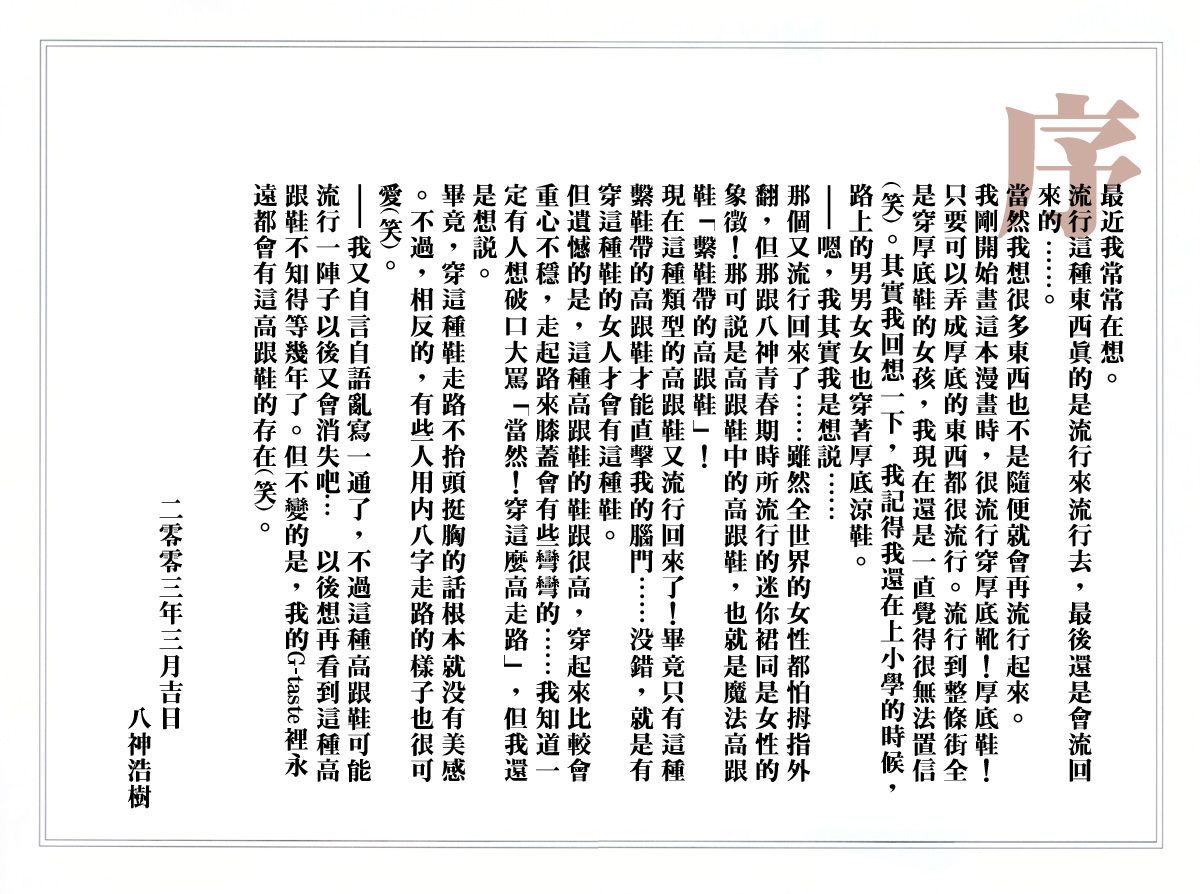 序
最近我常常在想。
流行這種東西眞的是流行來流行去，最後還是會流回
來的……。
當然我想很多東西也不是隨便就會再流行起來。
我剛開始畫這本漫畫時，很流行穿厚底靴！厚底鞋！
只要可以弄成厚底的東西都很流行。流行到整條街全
是穿厚底鞋的女孩，我現在還是一直覺得很無法置信
(笑)。其實我回想一下，我記得我還在上小學的時候，
路上的男男女女也穿著厚底涼鞋。
——嗯，我其實我是想說……
那個又流行回來了……雖然全世界的女性都怕拇指外
翻，但那跟八神青春期時所流行的迷你裙同是女性的
象徵！那可說是高跟鞋中的高跟鞋，也就是魔法高跟
鞋「繫鞋帶的高跟鞋」！
現在這種類型的高跟鞋又流行回來了！畢竟只有這種
繫鞋帶的高跟鞋才能直擊我的腦門……没錯，就是有
穿這種鞋的女人才會有這種鞋。
但遺憾的是，這種高跟鞋的鞋跟很高，穿起來比較會
重心不穩，走起路來膝蓋會有些彎彎的……我知道一
定有人想破口大罵「當然！穿這麼高走路」，但我還
是想説。
畢竟，穿這種鞋走路不抬頭挺胸的話根本就没有美感
。不過，相反的，有些人用内八字走路的樣子也很可
愛(笑)。
——我又自言自語亂寫一通了，不過這種高跟鞋可能
流行一陣子以後又會消失吧… 以後想再看到這種高
跟鞋不知得等幾年了。但不變的是，我的G-taste裡永
遠都會有這高跟鞋的存在(笑)。
二零零三年三月吉日
八神浩樹